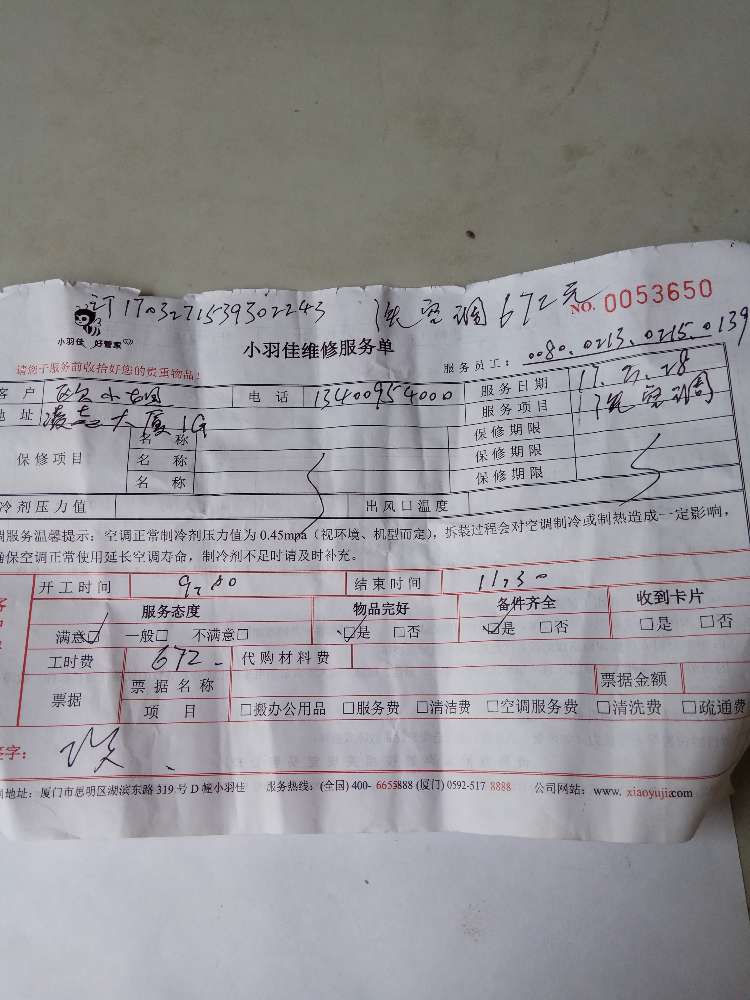 订1703271539302243 洗空调672元
NO. 0053650
小羽佳 好管家
小羽佳维修服务单
请您于服务前收拾好您的贵重物品!
服务员工: 0080.0213.0215.0139
客户 电话 13400954000 服务日期 17.3.28
地址 大厦1G 服务项目 洗空调
保修项目 名称 保修期限
名称 保修期限
名称 保修期限
冷剂压力值 出风口温度
调服务温馨提示:空调正常制冷剂压力值为 0.45mpa(视环境、机型而定),拆装过程会对空调制冷或制热造成一定影响,
确保空调正常使用延长空调寿命,制冷剂不足时请及时补充。
开工时间 结束时间 11.30
服务态度 物品完好 备件齐全 收到卡片
满意☑ 一般□ 不满意□ ☑是 □否 ☑是 □否 □是 □否
工时费 672- 代购材料费
票据 票据名称 票据金额
项目 □搬办公用品 □服务费 □清洁费 □空调服务费 □清洗费 □疏通费
签字:
地址:厦门市思明区湖滨东路 319 号 D 幢小羽佳 服务热线:(全国) 400- 6655888 (厦门) 0592-517 8888 公司网站:www. xiaoyujia.com